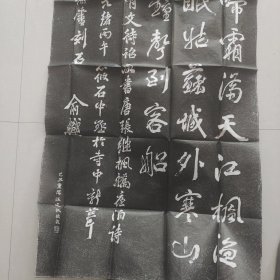 啼霜滿天江楓漁
眠姑蘇城外寒山
鐘聲到客船
有文待詔所書唐張繼楓橋夜泊詩
光緒丙午筱石中丞於寺中新葺
補書刻石俞樾